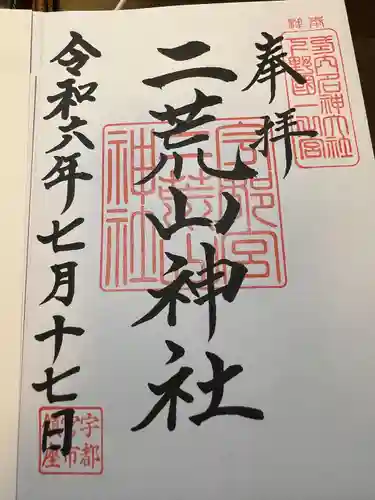 奉拝
二荒山神社
令和六年七月十七日
宇都宮
二荒山
神社
宇都
宮市
鎮座